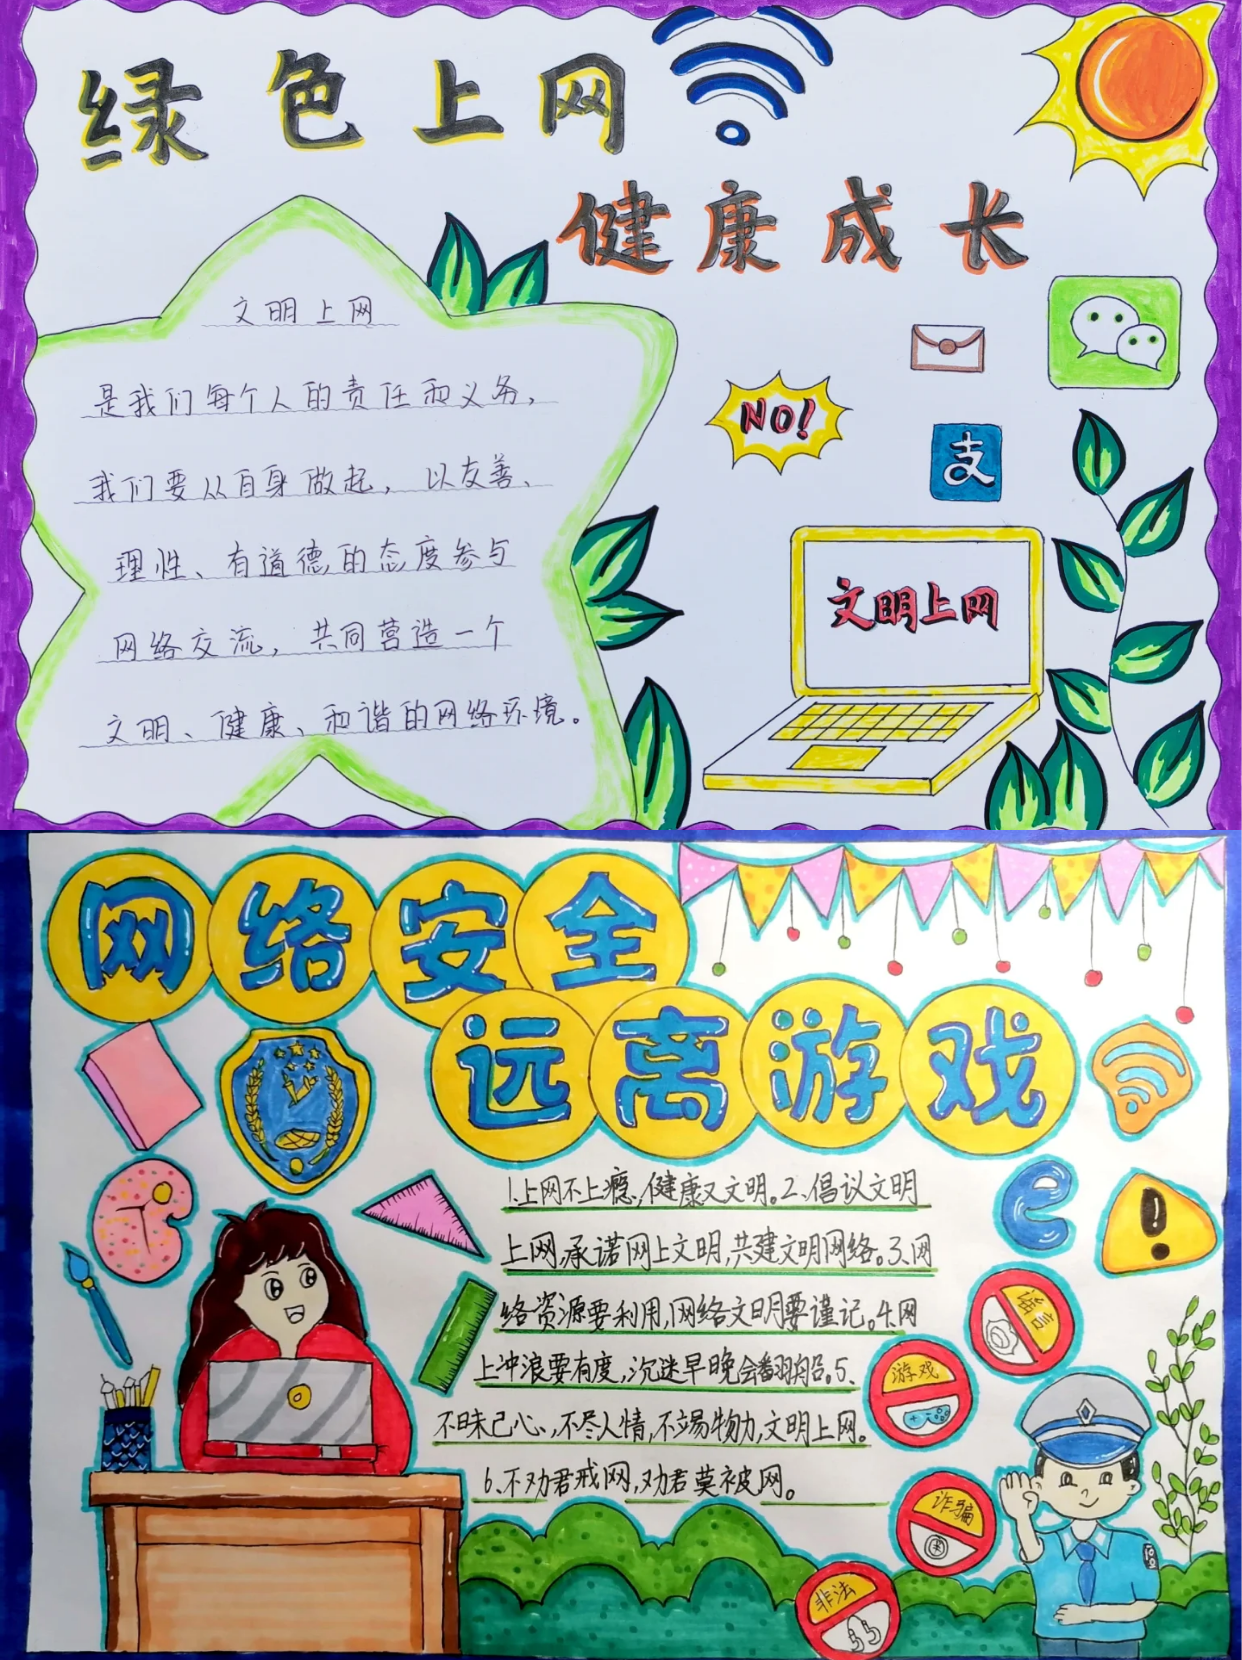 绿色上网
健康成长
文明上网
是我们每个人的责任和义务，
我们要从自身做起，以友善、
理性、有道德的态度参与
网络交流，共同营造一个
文明、健康、和谐的网络环境。
NO!
支
文明上网
网络安全
远离游戏
1.上网不上瘾，健康又文明。2.倡议文明
上网，承诺网上文明，共建文明网络。3.网
络资源要利用，网络文明要谨记。4.网
上冲浪要有度，沉迷早晚会翻船。5.
不昧己心，不尽人情，不竭物力，文明上网。
6.不劝君戒网，劝君莫被网。
谣言
游戏
诈骗
非法